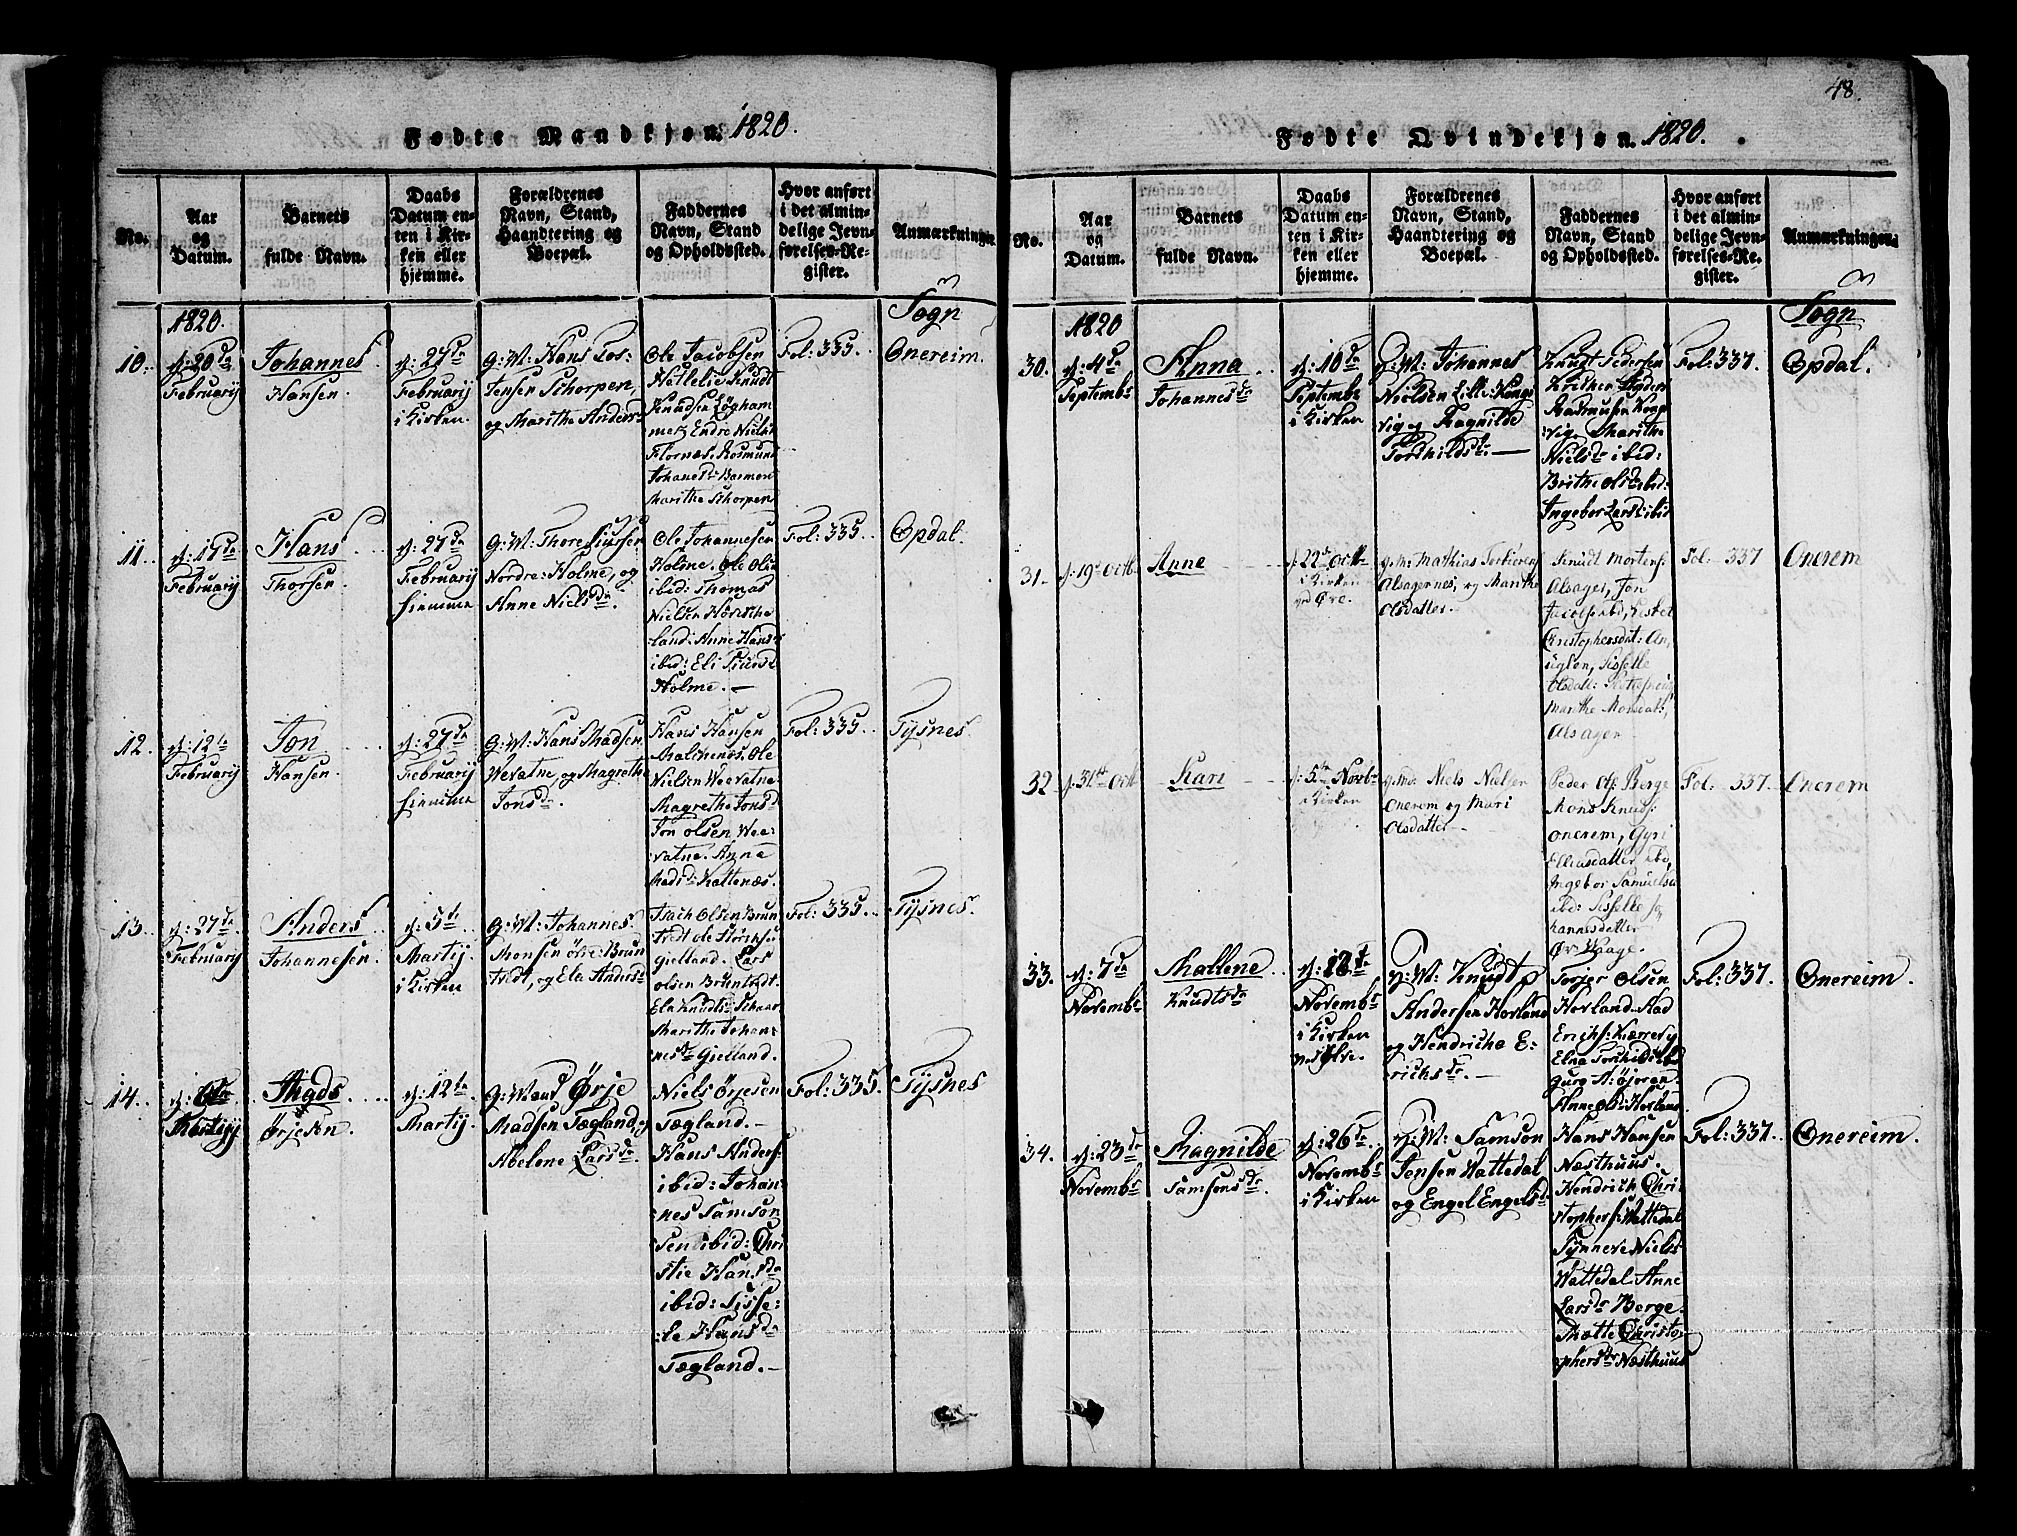 Fødte Mandkjøn. 1820.
No.
Aar
og
Datum.
Barnets
fulde Navn.
Daabs
Datum en-
ten i Kir-
ken eller
hjemme.
Forældrenes
Navn, Stand,
Haandtering og
Boepæl.
Faddernes
Navn, Stand
og Opholdssted.
Hvor anført
i det almin-
delige Jevn-
førelses-Re-
gister.
Anmærkninger.
Sogn
1820.
10.
d: 20de
Februarij
Johannes
Hansen.
d: 27de
Februarij
i Kirken.
G: M: Hans Los-
tensen Schorpen,
og Marithe Andersd
Ole Jacobsen
Knudt
Knudsen Løgham
Endre Niels:
Flornæs.
Johanesd:
Marithe Schorpen
Fol: 335.
Onereim.
11.
d: 17de
Februarij
Hans
Thorsen.
d: 27de
Februarij
hiemme
G: M: Thore Siursen
Nordre: Holme, og
Anne Nielsdr.
Ole Johannesen
Holme. Ole Ols:
ibid: Thomas
Nielsen
land: Anne Hans:
ibid: Eli Siursd
Holme. —
Fol: 335
Opdal.
12.
d: 12te
Februarij
Jon
Hansen.
d: 27de
Februarij
hiemme
G: M: Hans Madsen
Wevatne, og Magrethe
Jonsdr.
Hans Hansen
Malkenes. Ole
Nielsen Weevatne
Magrethe Jonsd
Jon Olsen Wee-
vatne. Anne
Madsd: Kattenæs.
Fol: 335
Tysnes.
13.
d: 27de
Februarij
Anders
Johannesen.
d: 5te
Martij.
i Kirken
G: M: Johannes
Monsen Øvre: Brun
tvedt, og Ela Andersd
Isach Olsen Brun
tvedt Ole
Gielland. Lars
Olsen Bruntvedt
Ela Knudtsd:
Marithe Johan-
nesdr Gielland.
Fol: 335.
Tysnes.
14.
d: 6te
Martij
Mads
Ørjesen.
d: 12te
Martij.
G: Mand Ørje
Madsen Tægland, og
Abelone Larsdr.
Niels Ørjesen
Tægland. —
Hans Anders:
ibid: Johan-
nes Samson
sen ibid: Chri
stie Hansdr
ibid: Sisse:
le Hansdr
Tægland. —
Fol: 335
Tysnes
48.
Fødte Qvindekjøn. 1820.
No.
Aar
og
Datum.
Barnets
fulde Navn.
Daabs
Datum en-
ten i Kir-
ken eller
hjemme.
Forældrenes
Navn, Stand,
Haandtering og
Boepæl.
Faddernes
Navn, Stand
og Opholdssted.
Hvor anført
i det almin-
delige Jevn-
førelses-Re-
gister.
Anmærkninger.
Sogn
1820
30.
d: 4de
Septembr
Anna
Johannesdr
d: 10de
Septembr
i Kirken
G: M: Johannes
Nielsen Lille: Kongs
vig og Ragnilde
Torkildsdr. —
Knudt Pedersen
Rasmusen Kong
vig. Marithe
Nielsdr ibid:
Brithe Olsd ibid:
Ingebor Larsd: ibid
Fol: 337.
Opdal.
31.
d. 19de Octb
Anne
d. 22de Octb
i Kirken
ved Øre.
g. M: Mathias Torbiørns
Alsagernes, og Marthe
Olsdatter.
Knudt Mortens:
Alsager, Jon
Jacobs: ibd, Lisbet
Christophersdat: An
uglen, Sisselle
Olsdat:
Marthe Monsdat:
Alsager
Fol: 337
Onerem
32
d. 31te Octb
Kari
d. 5te Novbr
i Kirken
g. Md: Niels Nielsen
Onerem og Mari
Olsdatter
Peder Ols: Berge
Mons Knuds:
Onerem, Gyri
Eliasdatter ibd,
Ingebor Samuelsd
ibd: Sisselle Jo
hannesdatter
Øv: Waage.
Fol: 337.
Onerem
33.
d: 7de
Novembr
Mallene
Knudtsdr
d: 12te
Novembr
i Kirken
ved Øre.
G: M: Knudt
Andersen Hovland
og Hendricha E:
richsdr. —
Torjer Olsen
Hovland.
Erichs:
Elna Torkildsd ibd
Guro A: Øjoren
Anne Ols: Hovland
Fol: 337.
Onereim.
34.
d: 23de
Novembr
Ragnilde
Samsonsdr.
d: 26de
Novembr
i Kirken
G: M: Samson
Jensen Wattedal
og Engel Engelsdr
Hans Hansen
Næsthuus.
Hendrich Chri
stophers: Wattedal
Synneve Nielsd
Wattedal. Anne
Larsdr Berge.
Mætte Christo
phersdr Næsthuus
Fol: 337.
Onereim.